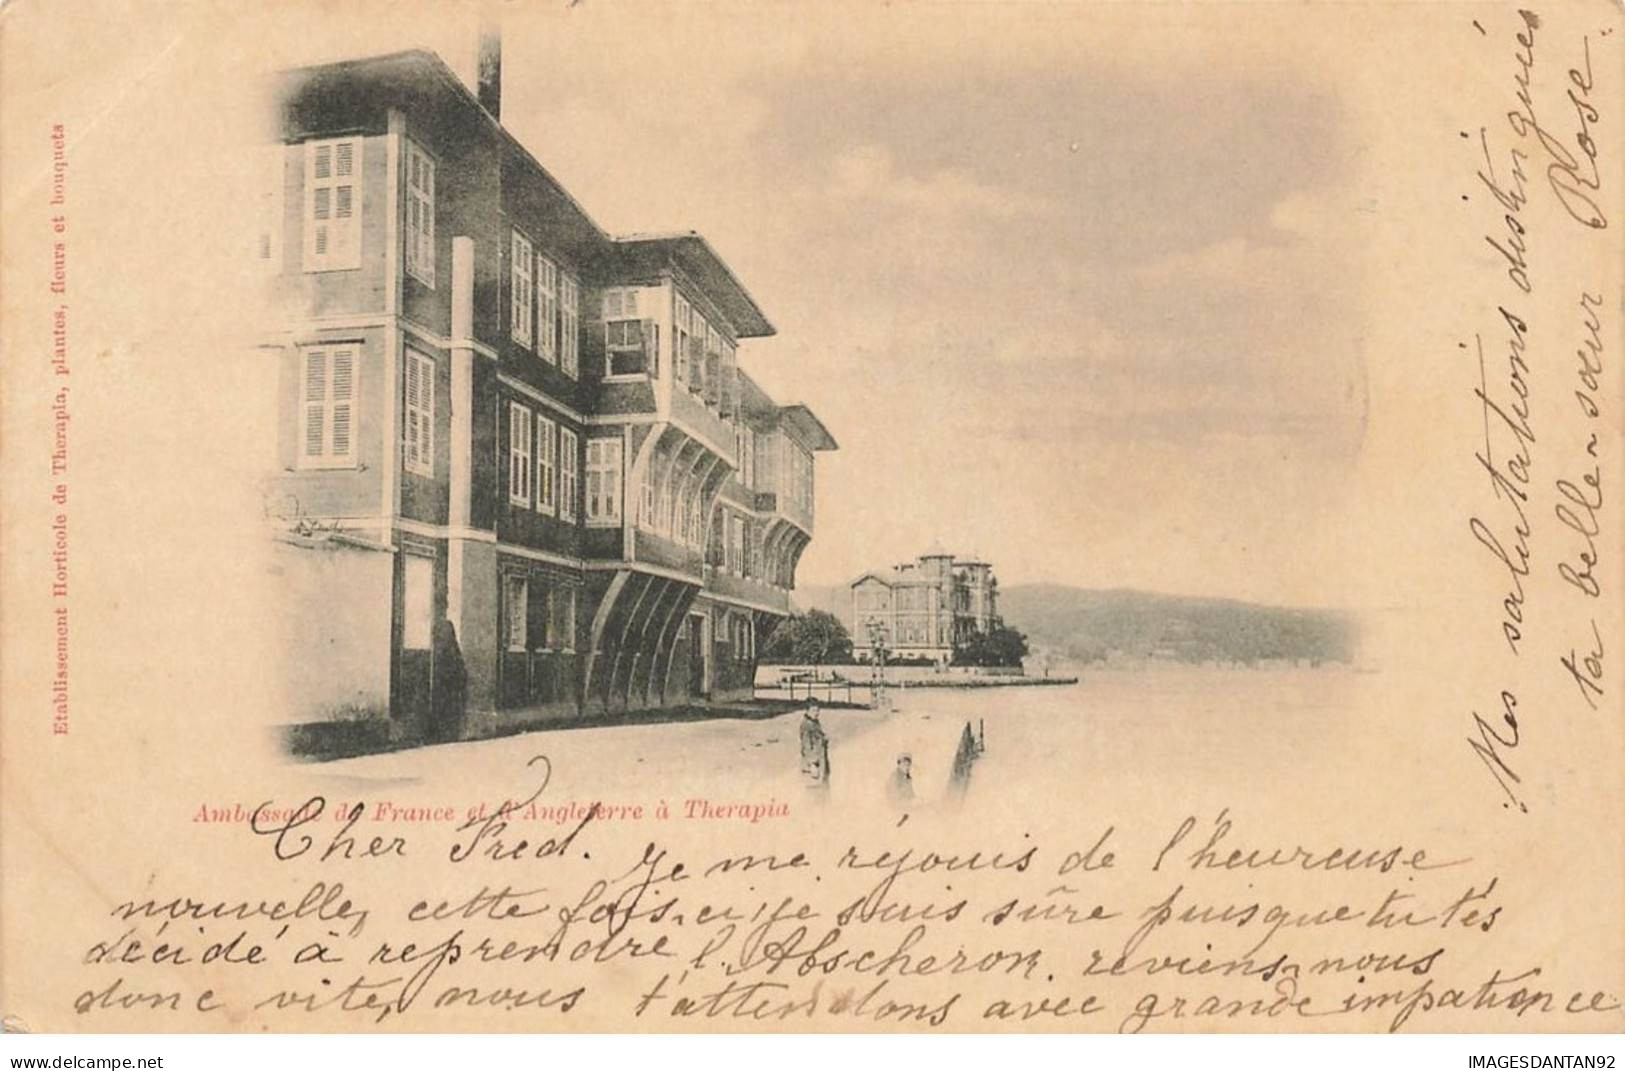 Etablissement Horticole de Therapia, plantes, fleurs et bouquets
Ambassade de France et d'Angleterre à Therapia
Cher Fred. Je me réjouis de l'heureuse
nouvelle, cette fois-ci je suis sûre puisque tu t'es
décidé à reprendre l'Abscheron. reviens-nous
donc vite, nous t'attendons avec grande impatience
Mes salutations distinguées
ta belle-sœur Rose
delcampe.net
IMAGESDANTAN92